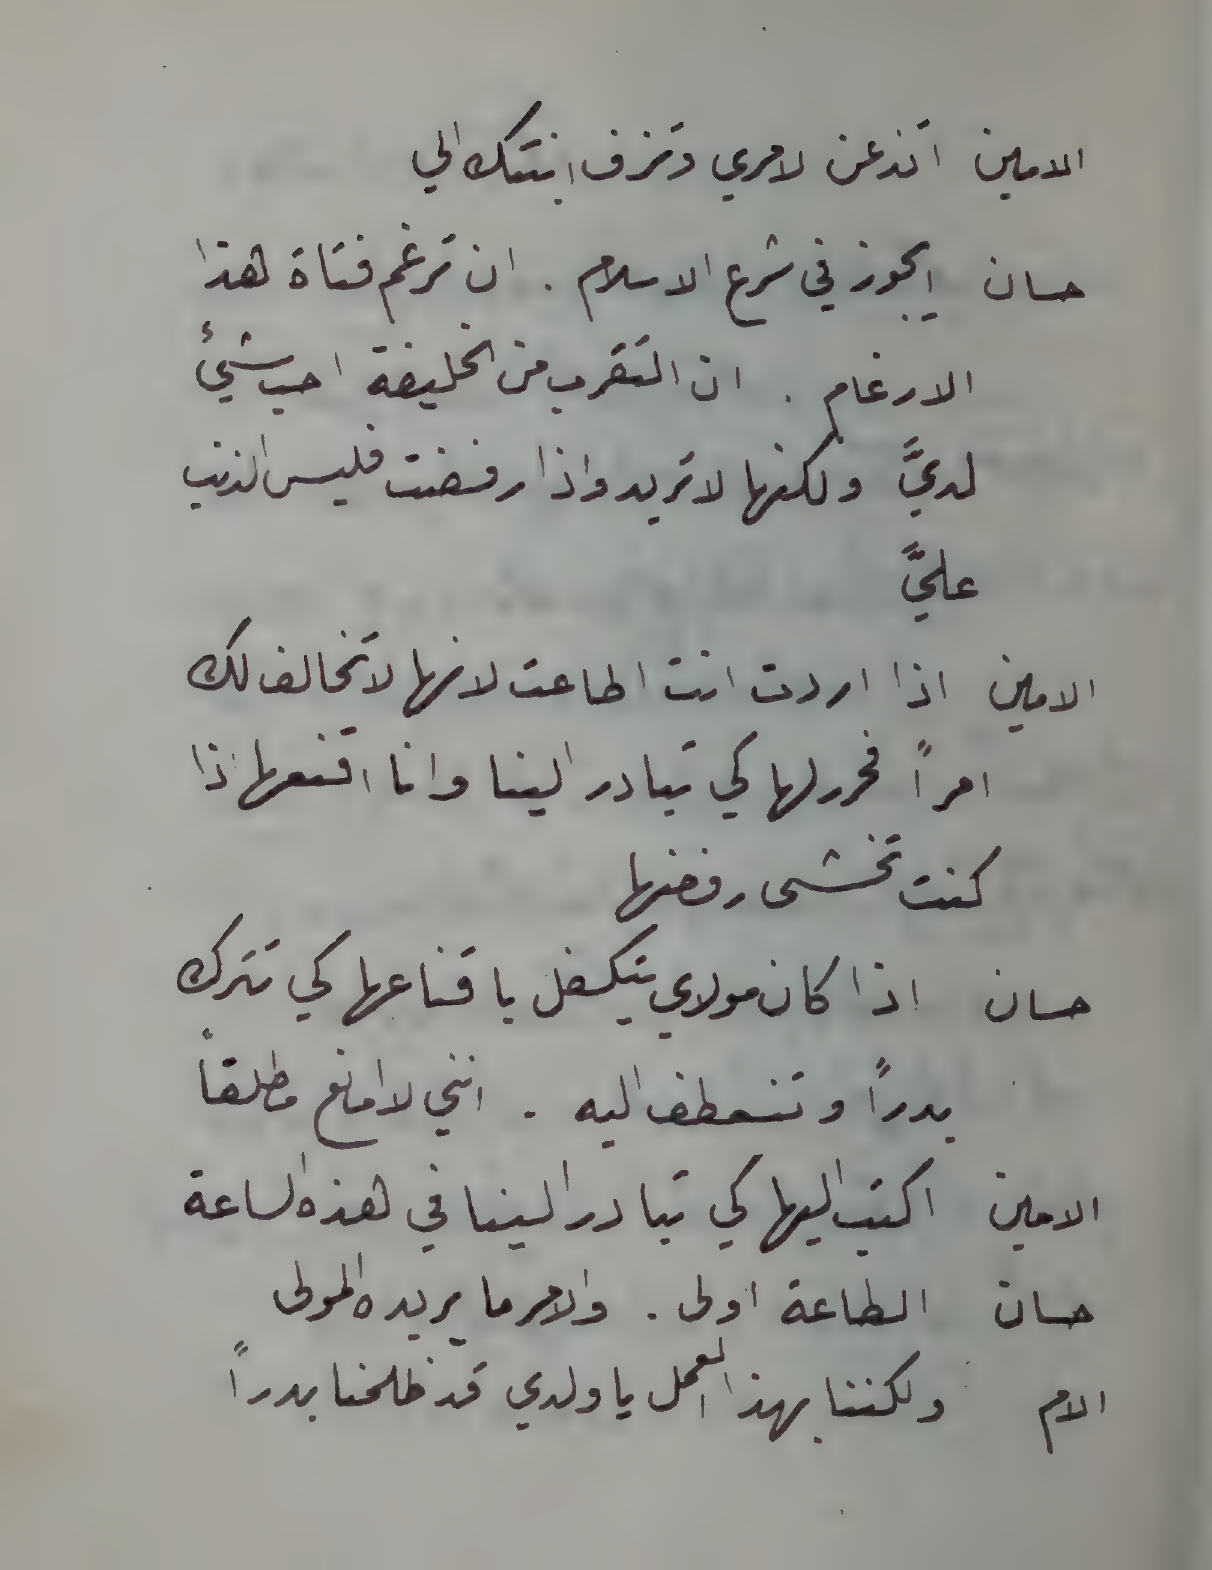 الامين اتذعن لامري وتزف ابنتك الي
حسان ايجوز في شرع الاسلام . ان ترغم فتاة هذا
الارغام . ان التقرب من الخليفة احب شيئ
لديَّ ولكنها لا تريد واذا رفضت فليس الذنب
عليَّ
الامين اذا اردت انت اطاعت لانها لا تخالف لك
امراً فحرر لها كي تبادر الينا وانا اقنعها اذا
كنت تخشى رفضها
حسان اذا كان مولاي يتكفل باقناعها كي تترك
بدراً وتنعطف اليه . انني لا امانع مطلقاً
الامين اكتب اليها كي تبادر الينا في هذه الساعة
حسان الطاعة اولى . والامر ما يريده المولى
الام ولكننا بهذا العمل يا ولدي قد ظلمنا بدراً